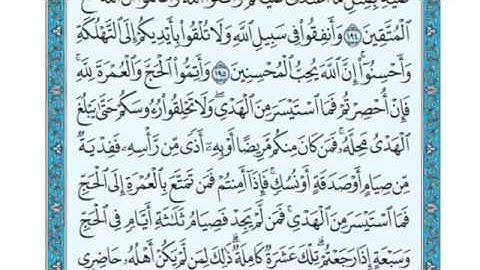 ٱلْمُتَّقِينَ ١٩٤ وَأَنفِقُوا۟ فِى سَبِيلِ ٱللَّهِ وَلَا تُلْقُوا۟ بِأَيْدِيكُمْ إِلَى ٱلتَّهْلُكَةِ
وَأَحْسِنُوٓا۟ إِنَّ ٱللَّهَ يُحِبُّ ٱلْمُحْسِنِينَ ١٩٥ وَأَتِمُّوا۟ ٱلْحَجَّ وَٱلْعُمْرَةَ لِلَّهِ ۚ
فَإِنْ أُحْصِرْتُمْ فَمَا ٱسْتَيْسَرَ مِنَ ٱلْهَدْىِ ۖ وَلَا تَحْلِقُوا۟ رُءُوسَكُمْ حَتَّىٰ يَبْلُغَ
ٱلْهَدْىُ مَحِلَّهُۥ ۚ فَمَن كَانَ مِنكُم مَّرِيضًا أَوْ بِهِۦٓ أَذًى مِّن رَّأْسِهِۦ فَفِدْيَةٌ
مِّن صِيَامٍ أَوْ صَدَقَةٍ أَوْ نُسُكٍ ۚ فَإِذَآ أَمِنتُمْ فَمَن تَمَتَّعَ بِٱلْعُمْرَةِ إِلَى ٱلْحَجِّ
فَمَا ٱسْتَيْسَرَ مِنَ ٱلْهَدْىِ ۚ فَمَن لَّمْ يَجِدْ فَصِيَامُ ثَلَٰثَةِ أَيَّامٍ فِى ٱلْحَجِّ
وَسَبْعَةٍ إِذَا رَجَعْتُمْ ۗ تِلْكَ عَشَرَةٌ كَامِلَةٌ ۗ ذَٰلِكَ لِمَن لَّمْ يَكُنْ أَهْلُهُۥ حَاضِرِى